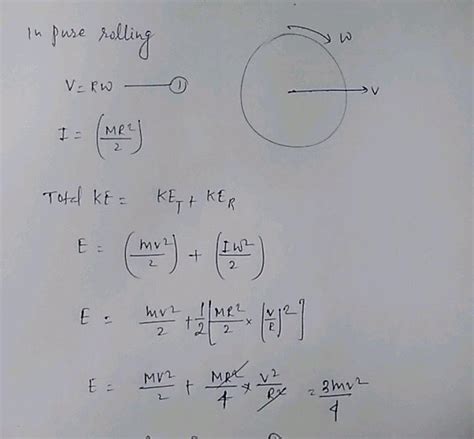 In pure rolling
W
V = RW ——— ①
V
I = (MR²/2)
Total KE = KE_T + KE_R
E = (mv²/2) + (IW²/2)
E = mv²/2 + 1/2 [MR²/2 × (V/R)²]
E = MV²/2 + MR²/4 × V²/R² = 3mv²/4